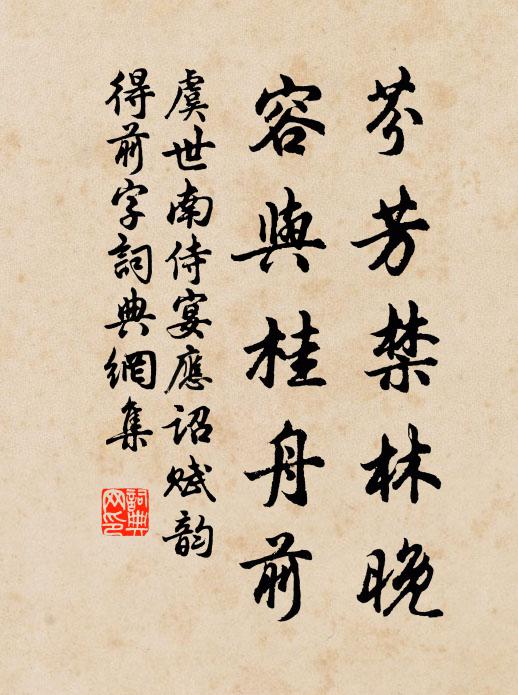 芬芳禁林晚
容與桂舟前
虞世南侍宴應詔賦韵
得前字詞典網集
詞典
网印